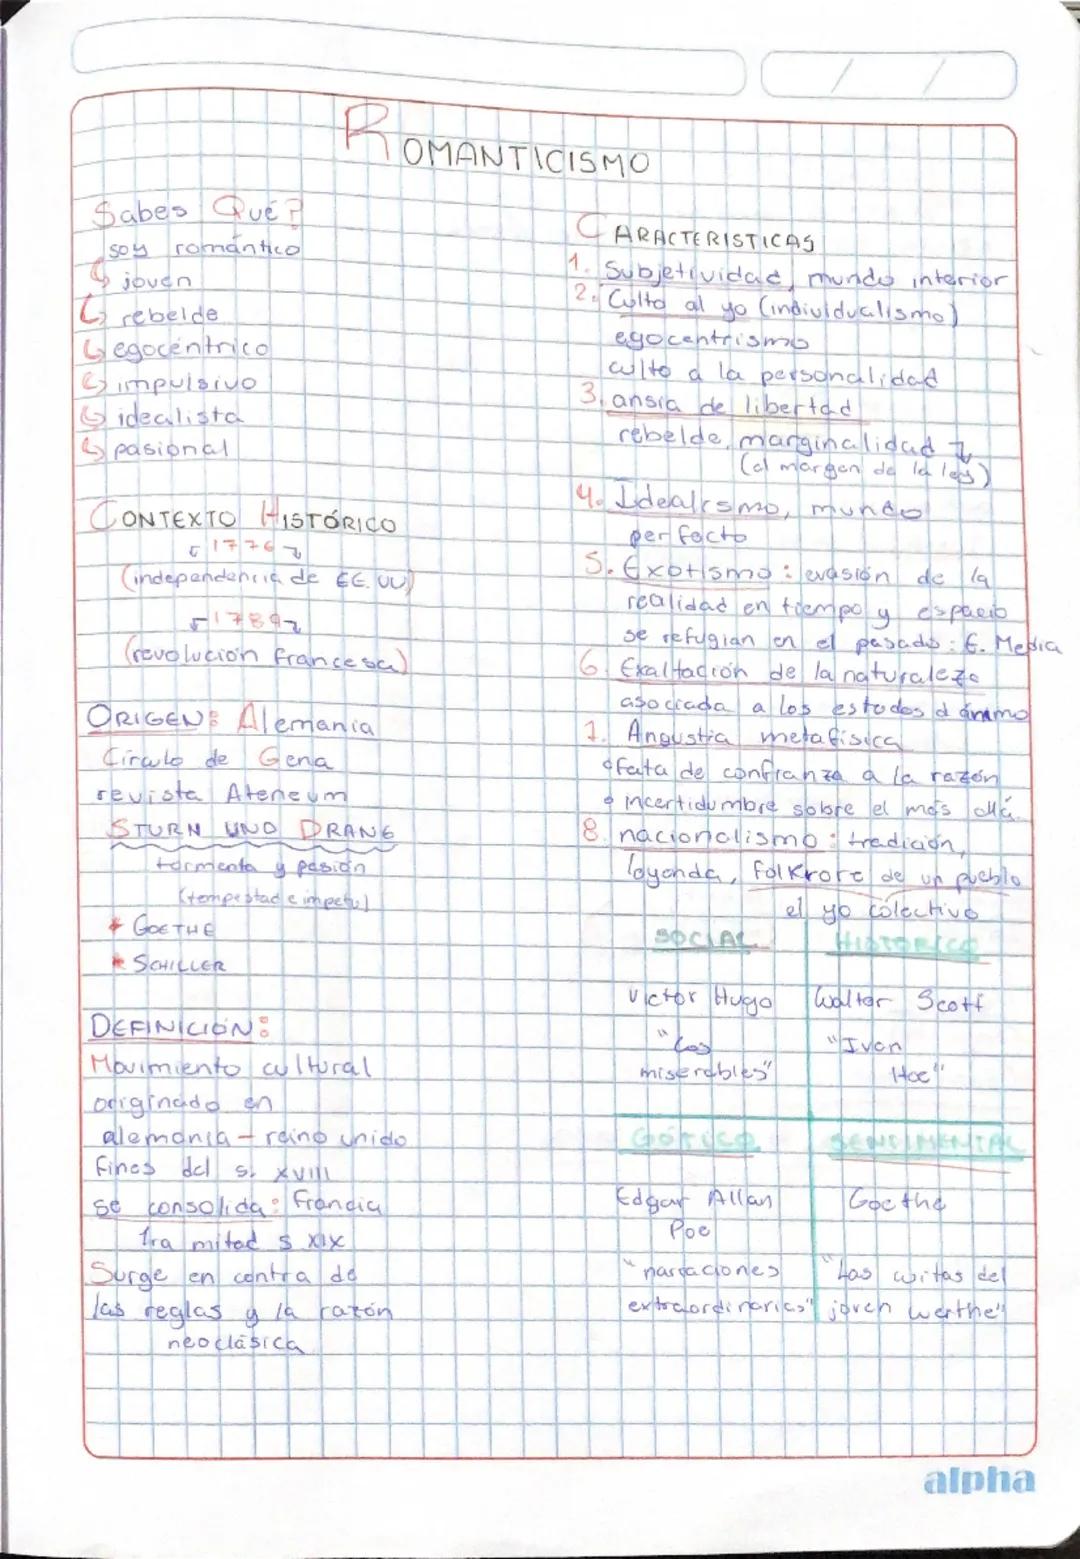 ROMANTICISMO
Sabes Qué?
soy romántico
joven
rebelde
egocéntrico
impulsivo
idealista
pasional
CONTEXTO HISTÓRICO
1776
(independencia de EE.UU)
1789
(revolución francesa)
ORIGEN: Alemania
Círculo de Gena
revista Ateneum
STURN UND DRANG
tormenta y pasión
(tempestad e impetu)
* GOETHE
* SCHILLER
DEFINICIÓN:
Movimiento cultural
originado en
alemania - reino unido
fines del s. XVIII
se consolida: Francia
1ra mitad s XIX
Surge en contra de
las reglas y la razón
neoclásica
CARACTERISTICAS
1. Subjetividad, mundo interior
2. Culto al yo (individualismo)
egocentrismo
culto a la personalidad
3. ansia de libertad
rebelde, marginalidad
(al margen de la ley)
4. Idealismo, mundo
perfecto
5. Exotismo: evasión de la
realidad en tiempo y espacio
se refugian en el pasado: E. Media
6. Exaltación de la naturaleza
asociada a los estados d ánimo
7. Angustia metafísica
fata de confianza a la razón
incertidumbre sobre el más allá.
8. nacionalismo: tradición,
leyenda, folkrore de un pueblo
el yo colectivo
SOCIAL HISTORICO
Victor Hugo Walter Scott
"Los "Ivan
miserables" Hoe"
GÓTICO SENDIMENTAL
Edgar Allan Goethe
Poe
"narraciones "Las cuitas del
extraordinarias" joven werthe"
alpha